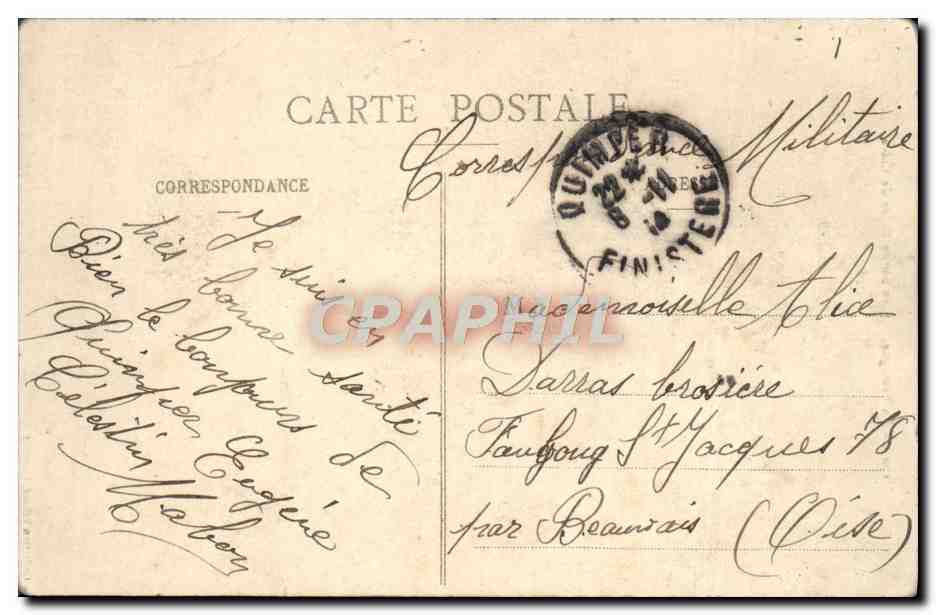 CARTE POSTALE
Correspondance Militaire
CORRESPONDANCE
ADRESSE
QUIMPER
22 * 11
FINISTERE
Je suis en
très bonne santé
Bien le bonjours de
Quimper Eugène
Célestin Mabon
Mademoiselle Alice
Darras brosière
Faubong St Jacques 78
par Beauvais (Oise)
CPAPHIL